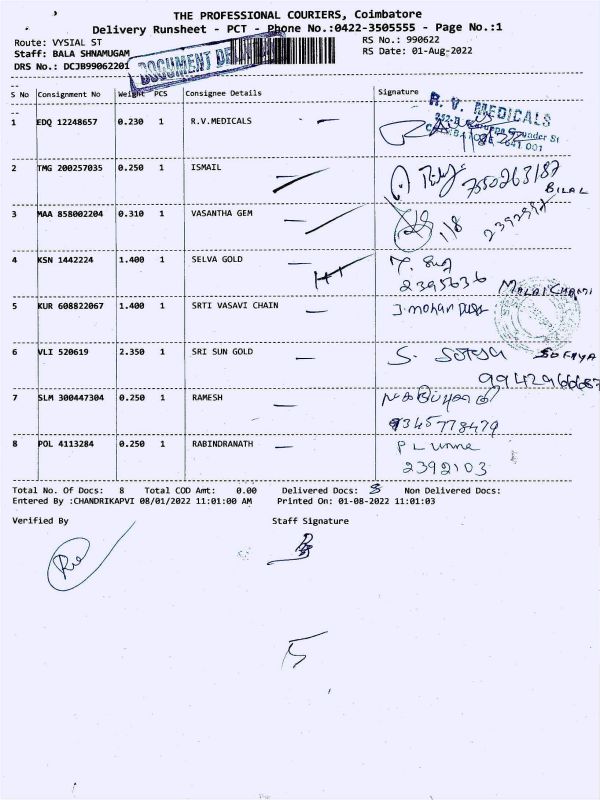 THE PROFESSIONAL COURIERS, Coimbatore
Delivery Runsheet - PCT - Phone No.:0422-3505555 - Page No.:1
Route: VYSIAL ST
RS No.: 990622
Staff: BALA SHNAMUGAM
RS Date: 01-Aug-2022
DRS No.: DCJB99062201
DOCUMENT
S No Consignment No Weight PCS Consignee Details Signature
R. V. MEDICALS
1 EDQ 12248657 0.230 1 R.V.MEDICALS
641 001
2 TMG 200257035 0.250 1 ISMAIL
7550263187
BILAL
3 MAA 858002204 0.310 1 VASANTHA GEM
1/8
4 KSN 1442224 1.400 1 SELVA GOLD
2395636
5 KUR 608822067 1.400 1 SRTI VASAVI CHAIN
J. mohan
6 VLI 520619 2.350 1 SRI SUN GOLD
S. Sofiya SOFIYA
7 SLM 300447304 0.250 1 RAMESH
9345778479
8 POL 4113284 0.250 1 RABINDRANATH
2392103
Total No. Of Docs: 8 Total COD Amt: 0.00 Delivered Docs: 8 Non Delivered Docs:
Entered By :CHANDRIKAPVI 08/01/2022 11:01:00 AM Printed On: 01-08-2022 11:01:03
Verified By Staff Signature